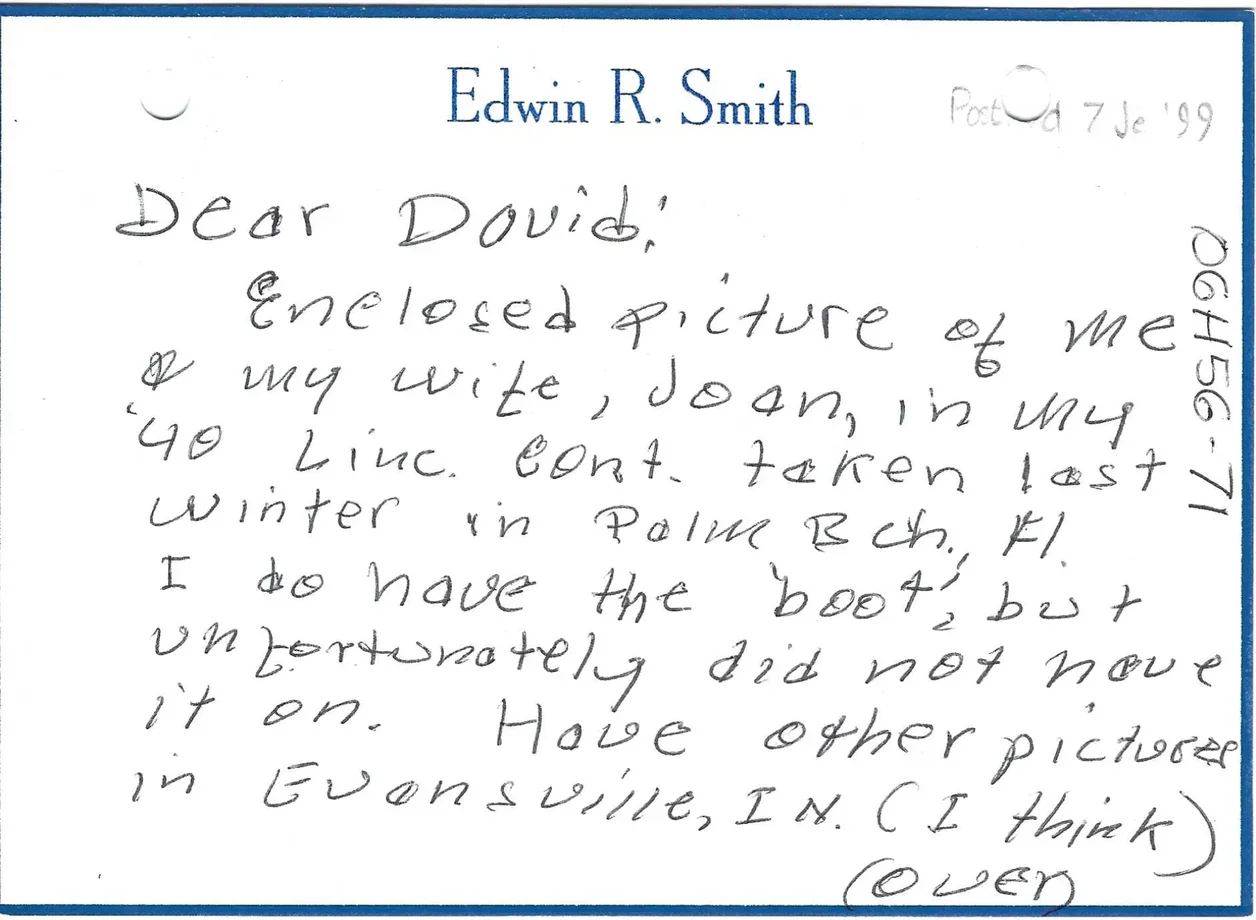 Edwin R. Smith
Posted 7 Je '99
Dear David:
Enclosed picture of me
& my wife, Joan, in my
'40 Linc. Cont. taken last
winter in Palm Bch., Fl.
I do have the 'boot', but
unfortunately did not have
it on. Have other pictures
in Evansville, IN. (I think)
(over)
06H56-71